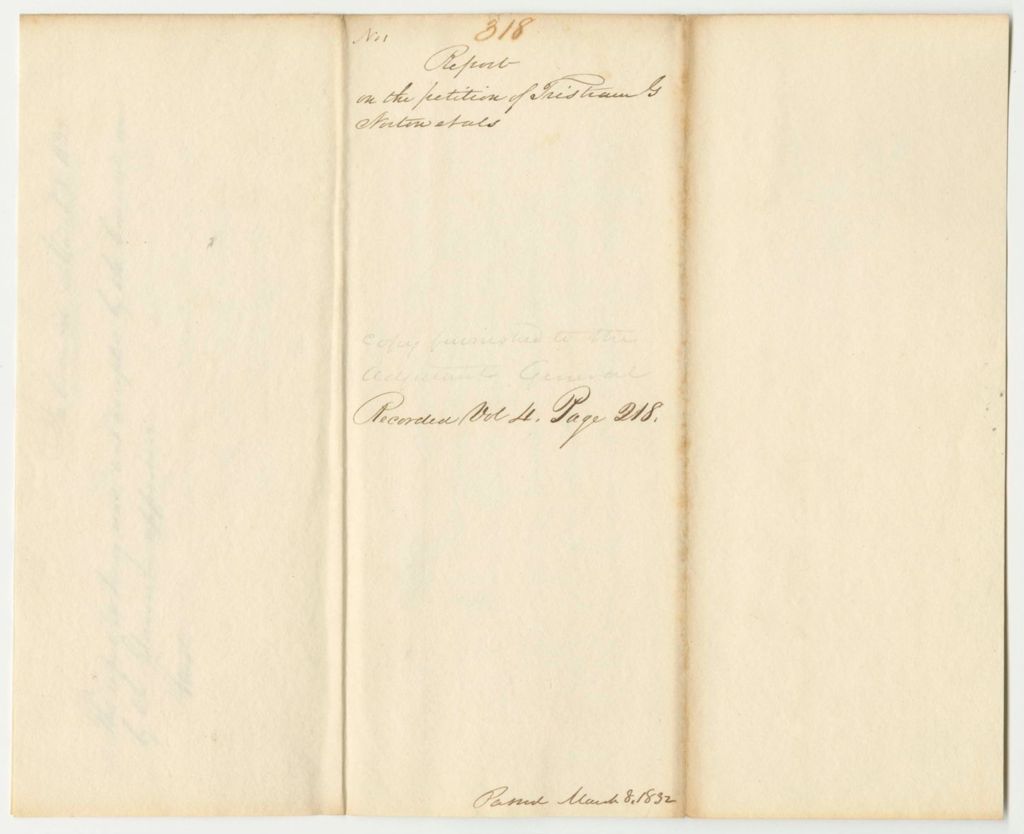 No 1
318
Report
on the petition of Tristram G
Norton et als
Copy furnished to the
Adjutant General
Recorded Vol 4. Page 218.
Passed March 8, 1832